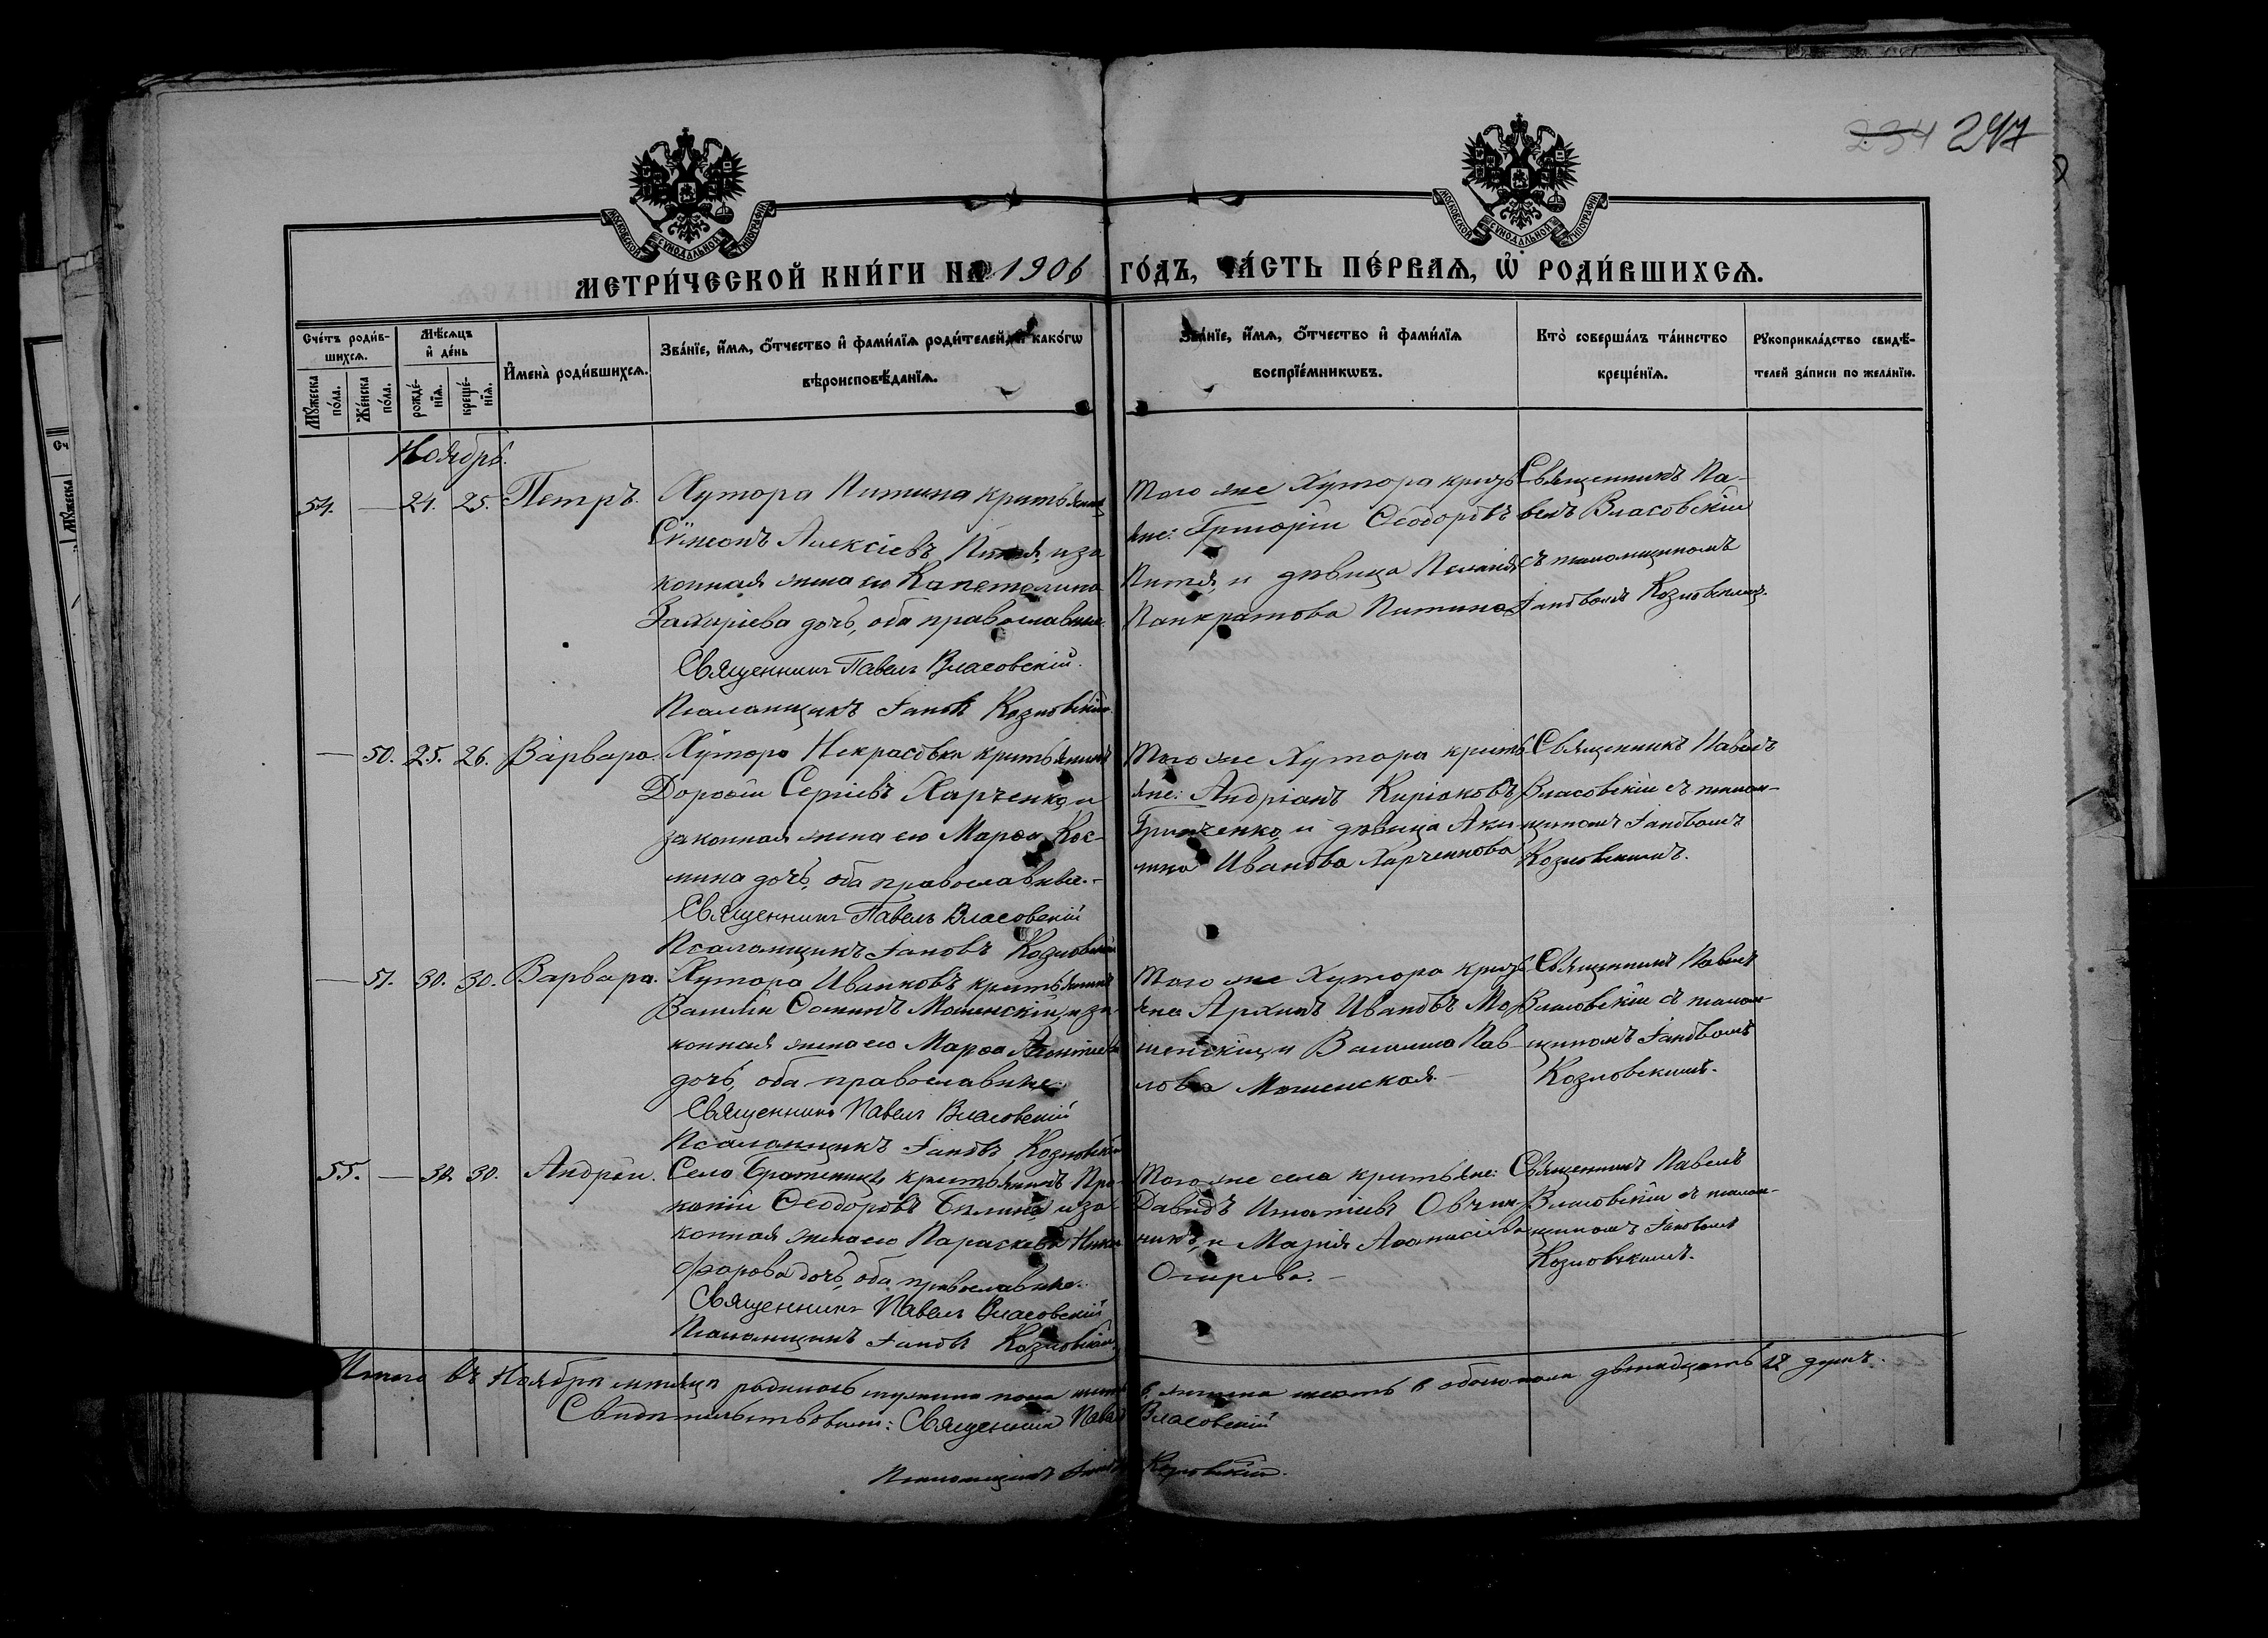 234 247
МОСКОВСКОЙ СУНОДАЛЬНОЙ ТИПОГРАФІИ
МОСКОВСКОЙ СУНОДАЛЬНОЙ ТИПОГРАФІИ
МЕТРИ́ЧЕСКОЙ КНИ́ГИ НА 1906 ГО́ДЪ, ЧА́СТЬ ПЕ́РВАѦ, Ѽ РОДИ́ВШИХСѦ.
Сче́тъ роди́в-
шихсѧ.
Мꙋ́жеска по́ла.
Же́нска по́ла.
Мѣ́сѧцъ и҆ де́нь
рожде́-
нїѧ.
креще́-
нїѧ.
И҆мена̀ роди́вшихсѧ.
Зва́нїе, и҆́мѧ, ѻ҆́тчество и҆ фами́лїѧ роди́телей, и҆ како́гѡ
вѣроисповѣ́данїѧ.
Зва́нїе, и҆́мѧ, ѻ҆́тчество и҆ фами́лїѧ
воспрїе́мникѡвъ.
Кто̀ соверша́лъ та́инство
креще́нїѧ.
Рꙋкоприкла́дство свидѣ́-
телей за́писи по жела́нїю.
Ноябрь.
54. — 24. 25. Петръ.
Хутора Питина крестьянинъ
Сѵмеонъ Алексіевъ и за
конная жена его Капетолина
Захаріева дочь, оба православные.
Священникъ Павелъ Власовскій.
Псаломщикъ Іаковъ Козловскій.
Того же Хутора кресть
яне: Григорій Ѳеодоровъ
и дѣвица Пелагія
Панкратова Питина
Священникъ Па-
велъ Власовскій
съ псаломщикомъ
Іаковомъ Козловскимъ.
— 50. 25. 26. Варвара.
Хутора Некрасовки крестьянинъ
Дороѳей Сергіевъ Харченко, и
законная жена его Марѳа Кос-
мина дочь, оба православные.
Священникъ Павелъ Власовскій
Псаломщикъ Іаковъ Козловскій
Того же Хутора кресть
яне: Андріанъ Киріаковъ
и дѣвица Аки-
лина Иванова Харченкова
Священникъ Павелъ
Власовскій съ псалом-
щикомъ Іаковомъ
Козловскимъ.
— 51. 30. 30. Варвара.
Хутора Иванковъ крестьянинъ
Василій Мошенскій, и за-
конная жена его Марѳа
дочь, оба православные.
Священникъ Павелъ Власовскій
Псаломщикъ Іаковъ Козловскій
Того же Хутора кресть
яне Архипъ Ивановъ Мо
шенскій, и Василиса Пав-
лова Мошенская.
Священникъ Павелъ
Власовскій съ псалом-
щикомъ Іаковомъ
Козловскимъ.
55. — 30. 30. Андрей.
Село Братеница крестьянинъ Про-
копій Ѳеодоровъ и за-
конная жена его Параскева Ники-
форова дочь, оба православные.
Священникъ Павелъ Власовскій
Псаломщикъ Іаковъ Козловскій
Того же села крестьяне:
Давидъ Игнатіевъ Овчин-
никъ, и Марія Аѳанасіева
Священникъ Павелъ
Власовскій съ псалом-
щикомъ Іаковомъ
Козловскимъ.
Итого въ Ноябрѣ мѣсяцѣ родилось мужеска пола шесть 6, женска шесть 6 обоего пола двѣнадцать 12 душъ.
Свидѣтельствовали: Священникъ Павелъ Власовскій
Псаломщикъ Іаковъ Козловскій.